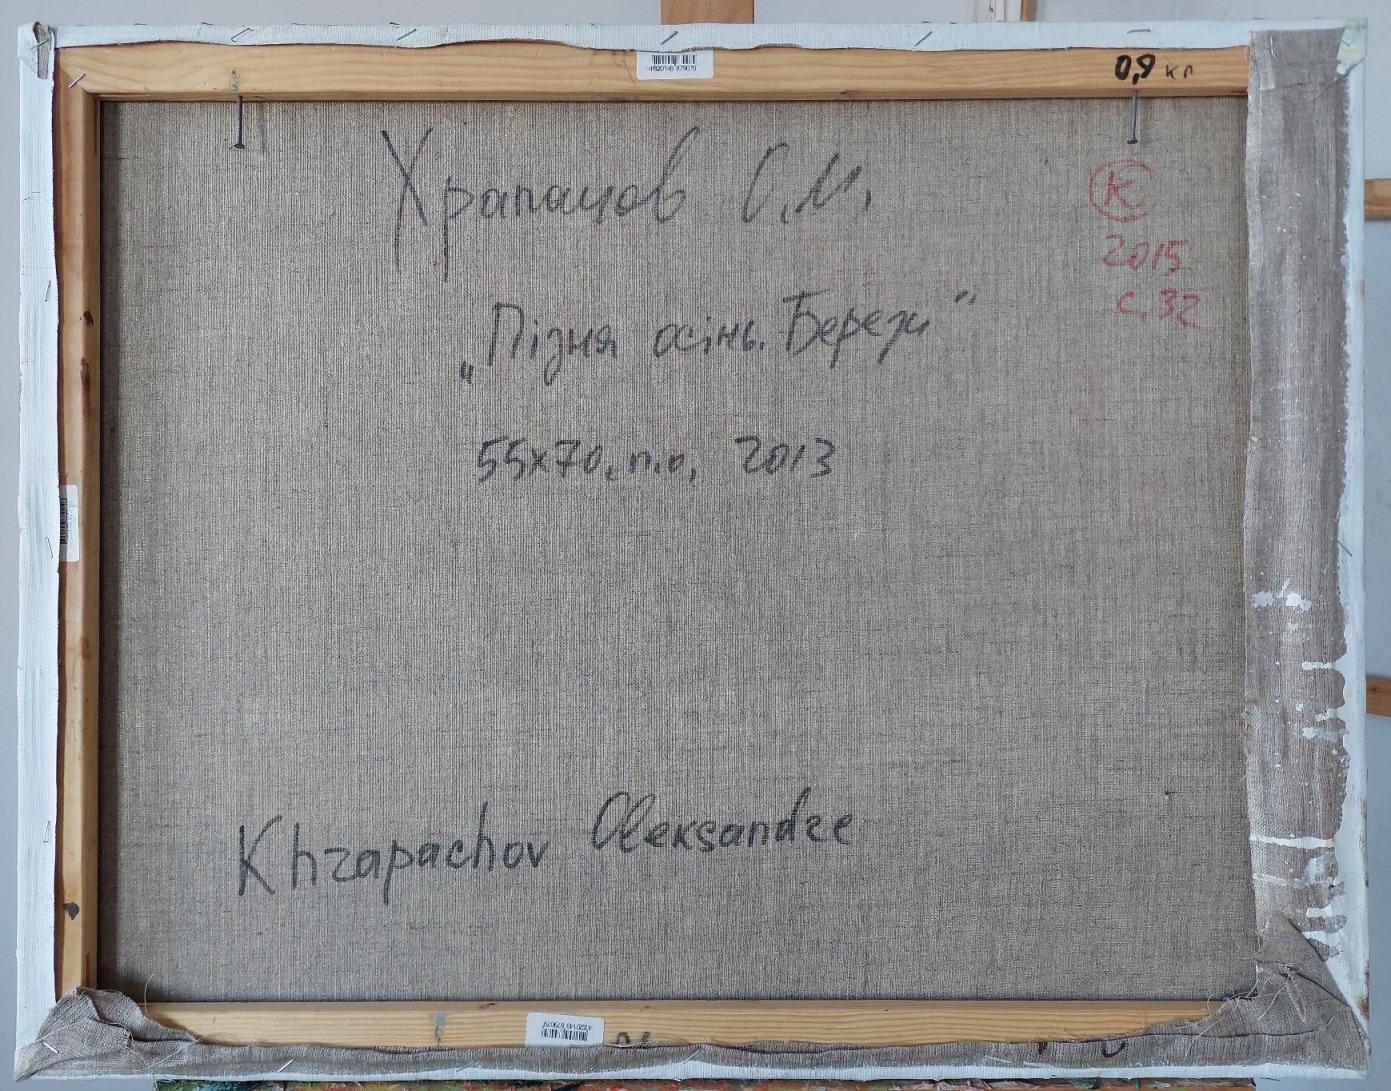 0,9 кл
Храпачов О.М.
К
2015
с. 32
„Пізня осінь. Берези"
55х70, п.о, 2013
Khrapachov Oleksandre